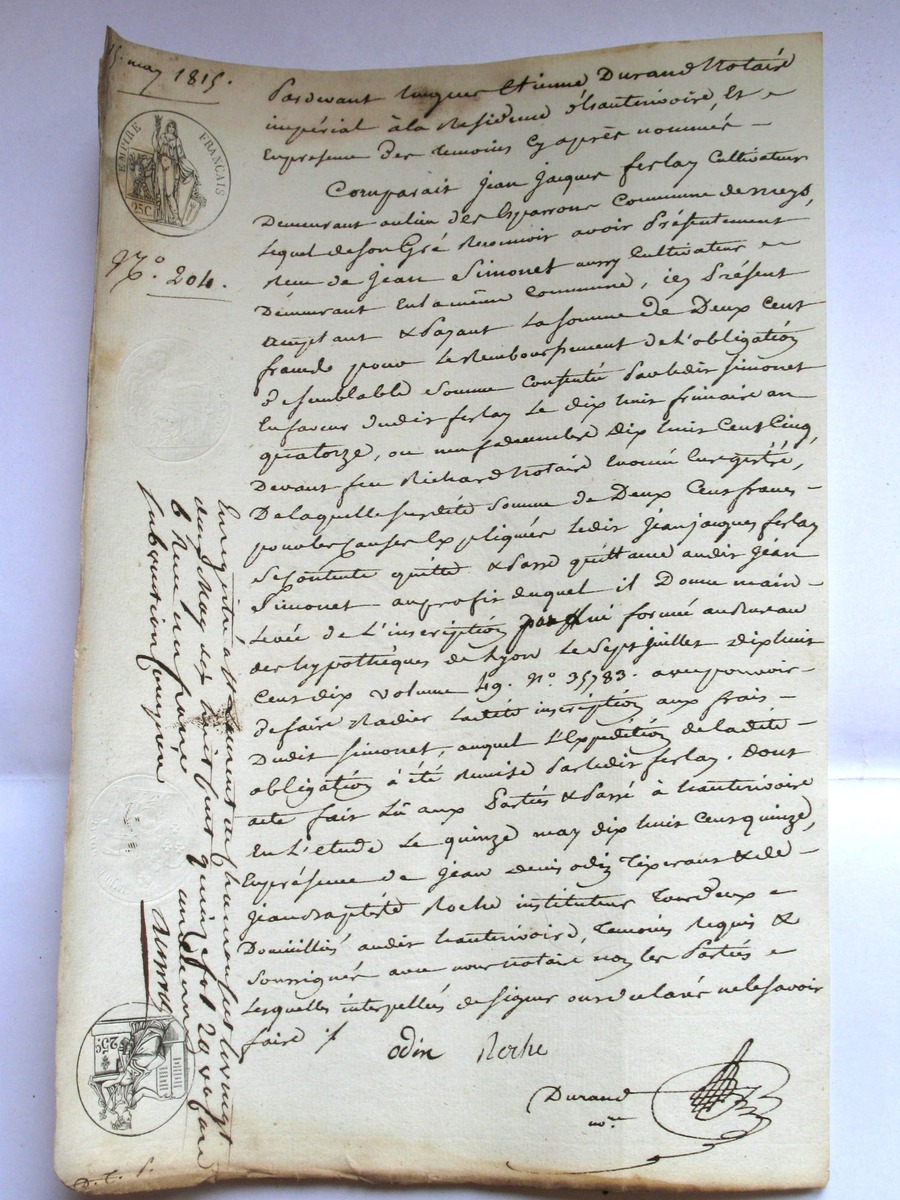 15. may 1815.
EMPIRE FRANÇAIS
25C.
N.º 204.
Pardevant Etienne Durand Notaire
impérial à la Residence d'hauterivoire, Et
En presence des temoins Cy après nommés
Comparait Jean Jacques ferlay Cultivateur
Demeurant au lieu des Esparrons Commune de meys,
Lequel de son Gré Reconnoit avoir Présentement
Recu de Jean Simonet aussy Cultivateur
Demeurant En la même Commune, icy Présent
acceptant & Payant La somme de Deux Cent
francs pour le Remboursement de L'obligation
de semblable somme Consentie Par ledit Simonet
En faveur dudit ferlay Le dix huit frimaire an
quatorze, ou neuf décembre dix huit Cent Cinq,
Devant feu Richard Notaire Enregistré,
De laquelle susdite somme de Deux Cent francs
pour les Causes Expliquées Ledit Jean Jacques ferlay
se Contente quitte & Passe quittance audit Jean
Simonet au profit duquel il Donne main
Levée de L'inscription par lui formée au Bureau
des hypothèques de Lyon Le sept Juillet dix huit
Cent dix volume 49. Nº 35783. avec pouvoir
de faire Radier Ladite inscription aux frais
Dudit Simonet, auquel L'Expédition de ladite
obligation à été Remise Par ledit ferlay. Dont
acte fait Lû aux Parties & Passé à hauterivoire
En L'etude Le quinze may dix huit Cent quinze,
En présence de Jean Denis odin Tixerant & de
Jean Baptiste Roche instituteur Tous deux
Domiciliés audit hauterivoire, Temoins Requis &
Soussignés avec nous Notaire non les Parties
Lesquelles interpellées de signer ont déclaré ne le savoir
faire
odin Roche
Durand
nore
Enregistré à St Laurent de Chamousset le vingt
deux May dix huit Cent quinze fol 20 vº Case
6 Reçu un franc
subvention comprise
25C.
D. C. P.